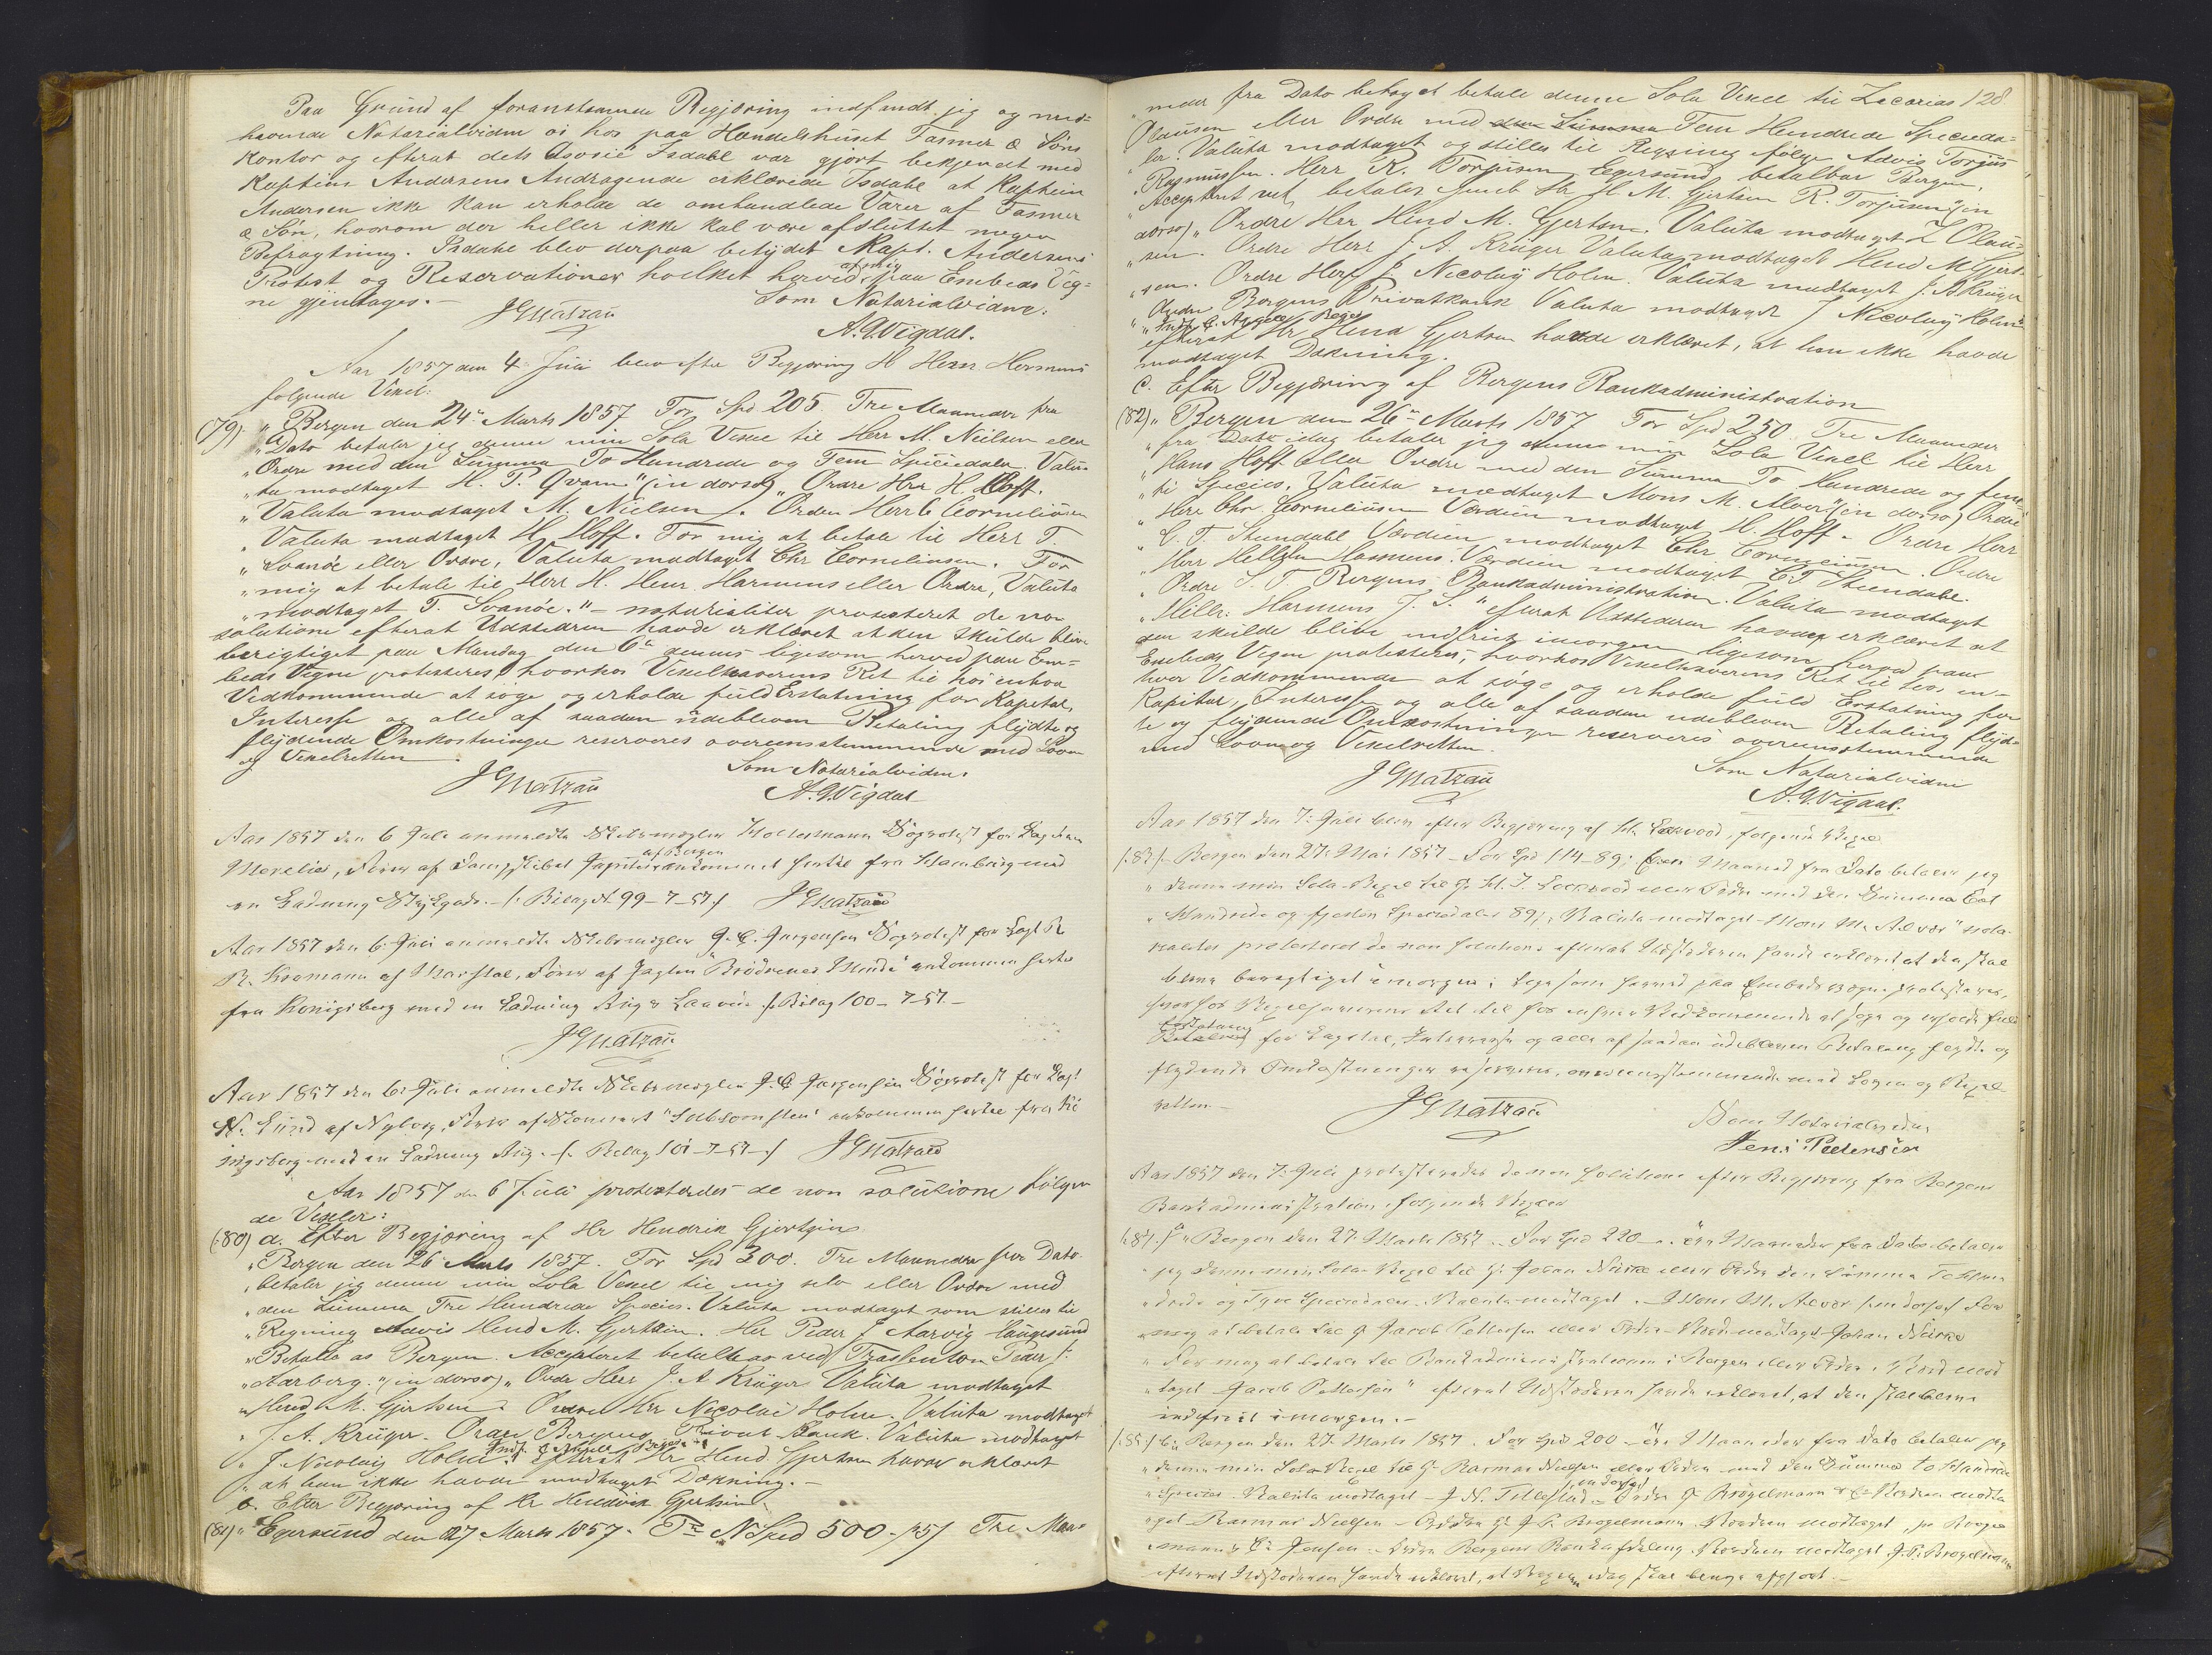 Paa Grund af foranstaaende Begjæring indfandt jeg og med-
havende Notarialvidne os hos paa Handelshuset Fasmer & Søns
Kontor og efterat dets Associé Isdahl var gjort bekjendt med
Kaptein Andersens Andragende erklærede Isdahl at Kaptein
Andersen ikke kan erholde de omhandlede Varer af Fasmer
& Søn, hvorom der heller ikke skal være afsluttet nogen
Befragtning. Isdahl blev derpaa betydet Kapt. Andersens
Protest og Reservationer hvilket herved af mig paa Embeds Veg-
ne gjentages.-
JGMatzau Som Notarialvidne:
A.G.Vigdal.
Aar 1857 den 4 Juli blev efter Begjæring H Henr Hermens
følgende Vexel:
(79) "Bergen den 24de Marts 1857. For Spd 205. Tre Maaneder fra
"Dato betaler jeg denne min Sola Vexel til Herr M. Nielsen eller
"Ordre med den Summa To Hundrede og Fem Speciedaler. Valu-
"ta modtaget H. T. Qvam." (in dorso) "Ordre Herr H. Hoff.
"Valuta modtaget M. Nielsen/. Ordren Herr C Corneliusen
"Valuta modtaget H. Hoff. For mig at betale til Herr T.
"Svanöe eller Ordre, Valuta modtaget Chr Corneliusen. For
"mig at betale til Herr H. Henr. Harmens eller Ordre, Valuta
"modtaget T. Svanöe."- notarialiter protesteret de non
solutione efterat Udstederen havde erklæret at den skulde blive
berigtiget paa Mandag den 6te dennes ligesom herved paa Em-
beds Vegne protesteres, hvorhos Vexelhaverens Ret til hos enhver
Vedkommende at søge og erholde fuld Erstatning for Kapital,
Interesse og alle af saadan udebleven Betaling flydte og
flydende Omkostninger reserveres overeensstemmende med Lovn
og Vexelretten
JGMatzau Som Notarialvidne.
A.G.Vigdal
Aar 1857 den 6 Juli anmeldte Skibsmægler Woltermann Søprotest for Kapitain
Morelius, Fører af Dampskibet Jupiter af Bergen ankommet hertil fra Hamburg med
en Ladning Stykgods.- (: Bilag № 99-7-57:) JGMatzau
Aar 1857 den 6 Juli anmeldte Skibsmægler J.C. Jurgensen Søprotest for Kapt R
R. Kromann af Marstal, Fører af Jagten "Brödrenes Minde" ankommen hertil
fra Königsberg med en Ladning Rug (: Bilag 100-7-57.-
JGMatzau
Aar 1857 den 6. Juli anmeldte Skibsmægler J.C. Jurgensen Søprotest for Kapt
N. Lund af Nyborg, Fører af Skonnert ankommen hertil fra Kö
nigsberg med en Ladning Rug.- (: Bilag 101-7-57-:) JGMatzau
Aar 1857 den 6 Juli protesteredes de non solutione følgen
de Vexler:
(80) a. Efter Begjæring af Hr Hendrik Gjertsen
"Bergen den 26 Marts 1857. For Spd 300. Tre Maaneder fra Dato
"betaler jeg denne min Sola Vexel til mig selv eller Ordre med
"den Summa Tre Hundrede Species. Valuta modtaget som stilles til
"Regning Advis Hend M. Gjertsen. Hr Peder J Aarvig Haugesund
"Betalbar Bergen. Accepteret betalbar ved Trassenten Peder J.
"Aarberg." (in dorso) "Ordr Herr J. A Krüger Valuta modtaget
"Hend. M. Gjertsen. Ordre Hr Nicolai Holm. Valuta modtaget
"J. A. Krüger. Ordre Bergens Privat Bank. Valuta modtaget
"J. Nicolay Holm." Efterat Hr Hend. Gjertsen havde erklæret
"at han ikke havde modtaget Dækning.-
b. Efter Begjæring af Hr Hendrik Gjertsen
(81) "Egersund den 27 Marts 1857. Pr N Sped 500-1857 Tre Maa-
128
neder fra Dato behaget betale denne Sola Vexel til Zacarias
Olausen eller Ordre med Fem Hundrede Specieda-
ler. Valuta modtaget og stilles til Regning følge Advis Torjus
Rasmussen. Herr R. Torjusen Egersund, betalbar Bergen.
"Acceptert ved betales hos Hr H. M. Gjertsen R. Torjusen" (in
dorso) "Ordre Hrr Hend M. Gjertsen. Valuta modtaget Z Olau-
"sen. Ordre Herr J. A. Krüger Valuta modtaget Hend M Gjert-
"sen. Ordre Herr J. Nicolay Holm. Valuta modtaget J. A Krüger
"Ordre Bergens Privatbank Valuta modtaget J Nicolay Holm"
efterat Hr Hend Gjertsen havde erklæret, at han ikke havde
modtaget Dækning.
c. Efter Begjæring af Bergens Bankadministration
(82) "Bergen den 26de Marts 1857 For Spd 250. Tre Maaneder
"fra Dato idag betaler jeg denne min Sola Vexel til Herr
"Hans Hoff eller Ordre med den Summa To hundrede og femm-
"ti Species. Valuta modtaget Mons M. Alver" (in dorso) Ordre
"Herr Chr. Corneliusen Værdien modtaget H. Hoff - Ordre Herr
"C. T. Steendahl Værdien modtaget Chr Corneliusen. Ordre
"Herr Harmens. Værdien modtaget C T Steendahl.
"Ordre S. T. Bergens Bankadministration. Valuta modtaget
"Hillr. Harmens J. S." efterat Udstederen havde erklæret at
den skulde blive indfriet imorgen ligesom herved paa
Embeds Vegne protesteres, hvorhos Vexelhaverens Ret til hos en-
hver Vedkommende at søge og erholde fuld Erstatning for
Kapital, Interesse og alle af saadan udebleven Betaling flyd-
te og flydende Omkostninger reserveres overeensstemmende
med Lovn og Vexelretten.
JGMatzau Som Notarialvidne
A.G.Vigdal.
Aar 1857 den 7. Juli blev efter Begjæring af følgende Vexel
(:83:) Bergen den 27. Mai 1857 - For Spd 114-89; Een Maaned fra Dato betaler jeg
"denne min Sola-Vexel til Hr eller Ordre med den Summa Eet
"Hundrede og fjorten Speciedaler 89; Valuta modtaget Mons M. Alver" nota-
rialiter protesteret de non solutione efterat Udstederen havde erklæret at den skal
blive berigtiget imorgen; ligesom herved paa Embeds Vegne protesteres,
hvorhos Vexelhaverens Ret til hos enhver Vedkommende at søge og erholde fuld
Erstatning for Kapital, Interesse og alle af saadan udebleven Betaling flydte og
flydende Omkostninger reserveres, overeensstemmende med Loven og Vexel-
retten.-
JGMatzau Som Notarialvidne
Jens Pedersen
Aar 1857 den 7. Juli protesteredes de non solutione efter Begjæring fra Bergens
Bankadministration følgende Vexler
(:84:) a "Bergen den 27 Marts 1857. For Spd 220 - Maaneder fra Dato betaler
"jeg denne min Sola Vexel til Hr Johan eller Ordre den Summa To Hun-
"drede og Tyve Speciedaler. Valuta modtaget. Mons M. Alver (in dorso) For
"mig at betale til Hr Jacob Pettersen eller Ordre - Værd. modtaget Johan
"For mig at betale til Bankadministrationen i Bergen eller Ordre. Værd. mod
"taget Jacob Pettersen" efterat Udstederen havde erklæret, at den skal blive
indfriet imorgen.-
(:85:) b. Bergen den 27. Marts 1857. For Spd 200 - Maaneder fra Dato betaler jeg
"denne min Sola Vexel til Hr Rasmus Nielsen eller Ordre med den Summa to Hundrede
"Species. Valuta modtaget - J N. Tillestad - (in dorso) Ordre Hr Brögelmann & Cs Værdien modta
"get Rasmus Nielsen - Ordre Hr J. P. Brögelmann Værdien modtaget, pr Brögel
"mann & Cs Jensen. Ordre Bergens Bankafdeling Værdien modtaget J. P. Brögelmann
efterat Udstederen havde erklæret, at Vexelen idag skal blive afgjort.-